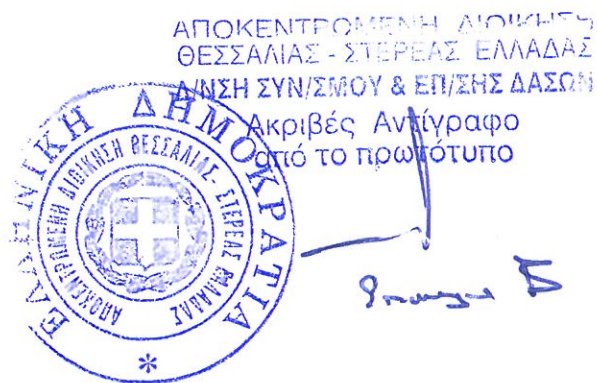 ΑΠΟΚΕΝΤΡΩΜΕΝΗ ΔΙΟΙΚΗΣΗ
ΘΕΣΣΑΛΙΑΣ - ΣΤΕΡΕΑΣ ΕΛΛΑΔΑΣ
Δ/ΝΣΗ ΣΥΝ/ΣΜΟΥ & ΕΠ/ΣΗΣ ΔΑΣΩΝ
Ακριβές Αντίγραφο
από το πρωτότυπο
ΕΛΛΗΝΙΚΗ ΔΗΜΟΚΡΑΤΙΑ
ΑΠΟΚΕΝΤΡΩΜΕΝΗ ΔΙΟΙΚΗΣΗ ΘΕΣΣΑΛΙΑΣ - ΣΤΕΡΕΑΣ ΕΛΛΑΔΑΣ
*